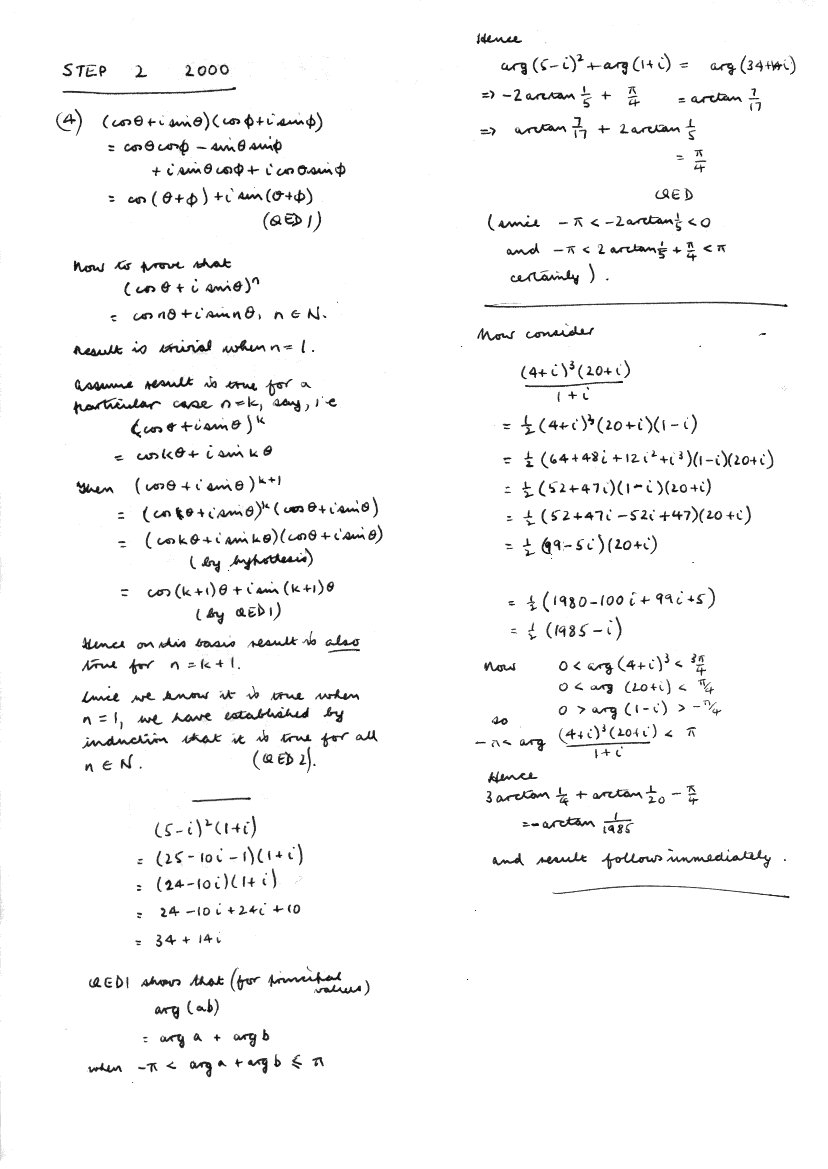 STEP 2 2000
(4) (cosθ+i sinθ)(cosϕ+i sinϕ)
= cosθcosϕ – sinθsinϕ
+ i sinθcosϕ + i cosθsinϕ
= cos(θ+ϕ)+i sin(θ+ϕ)
(QED1)
Now to prove that
(cosθ + i sinθ)ⁿ
= cos nθ + i sin nθ, n ∈ N.
Result is trivial when n = 1.
Assume result is true for a
particular case n=k, say, i.e
(cosθ + i sinθ)ᵏ
= cos kθ + i sin kθ
Then (cosθ + i sinθ)ᵏ⁺¹
= (cosθ + i sinθ)ᵏ(cosθ + i sinθ)
= (cos kθ + i sin kθ)(cosθ + i sinθ)
(by hypothesis)
= cos(k+1)θ + i sin(k+1)θ
(by QED1)
Hence on this basis result is also
true for n = k+1.
Since we know it is true when
n = 1, we have established by
induction that it is true for all
n ∈ N. (QED2).
(5–i)²(1+i)
= (25–10i–1)(1+i)
= (24–10i)(1+i)
= 24–10i+24i+10
= 34 + 14i
QED1 shows that (for principal
values)
arg(ab)
= arg a + arg b
when -π < arg a + arg b ≤ π
Hence
arg(5–i)² + arg(1+i) = arg(34+14i)
⇒ -2arctan 1/5 + π/4 = arctan 7/17
⇒ arctan 7/17 + 2arctan 1/5
= π/4
QED
(since -π < -2arctan 1/5 < 0
and -π < 2arctan 1/5 + π/4 < π
certainly).
Now consider
(4+i)³(20+i)
1+i
= ½(4+i)³(20+i)(1–i)
= ½(64+48i+12i²+i³)(1–i)(20+i)
= ½(52+47i)(1–i)(20+i)
= ½(52+47i–52i+47)(20+i)
= ½(99–5i)(20+i)
= ½(1980–100i+99i+5)
= ½(1985–i)
Now 0 < arg(4+i)³ < 3π/4
0 < arg(20+i) < π/4
0 > arg(1–i) > -π/4
so
-π < arg (4+i)³(20+i) < π
1+i
Hence
3arctan 1/4 + arctan 1/20 – π/4
= -arctan 1/1985
and result follows immediately.